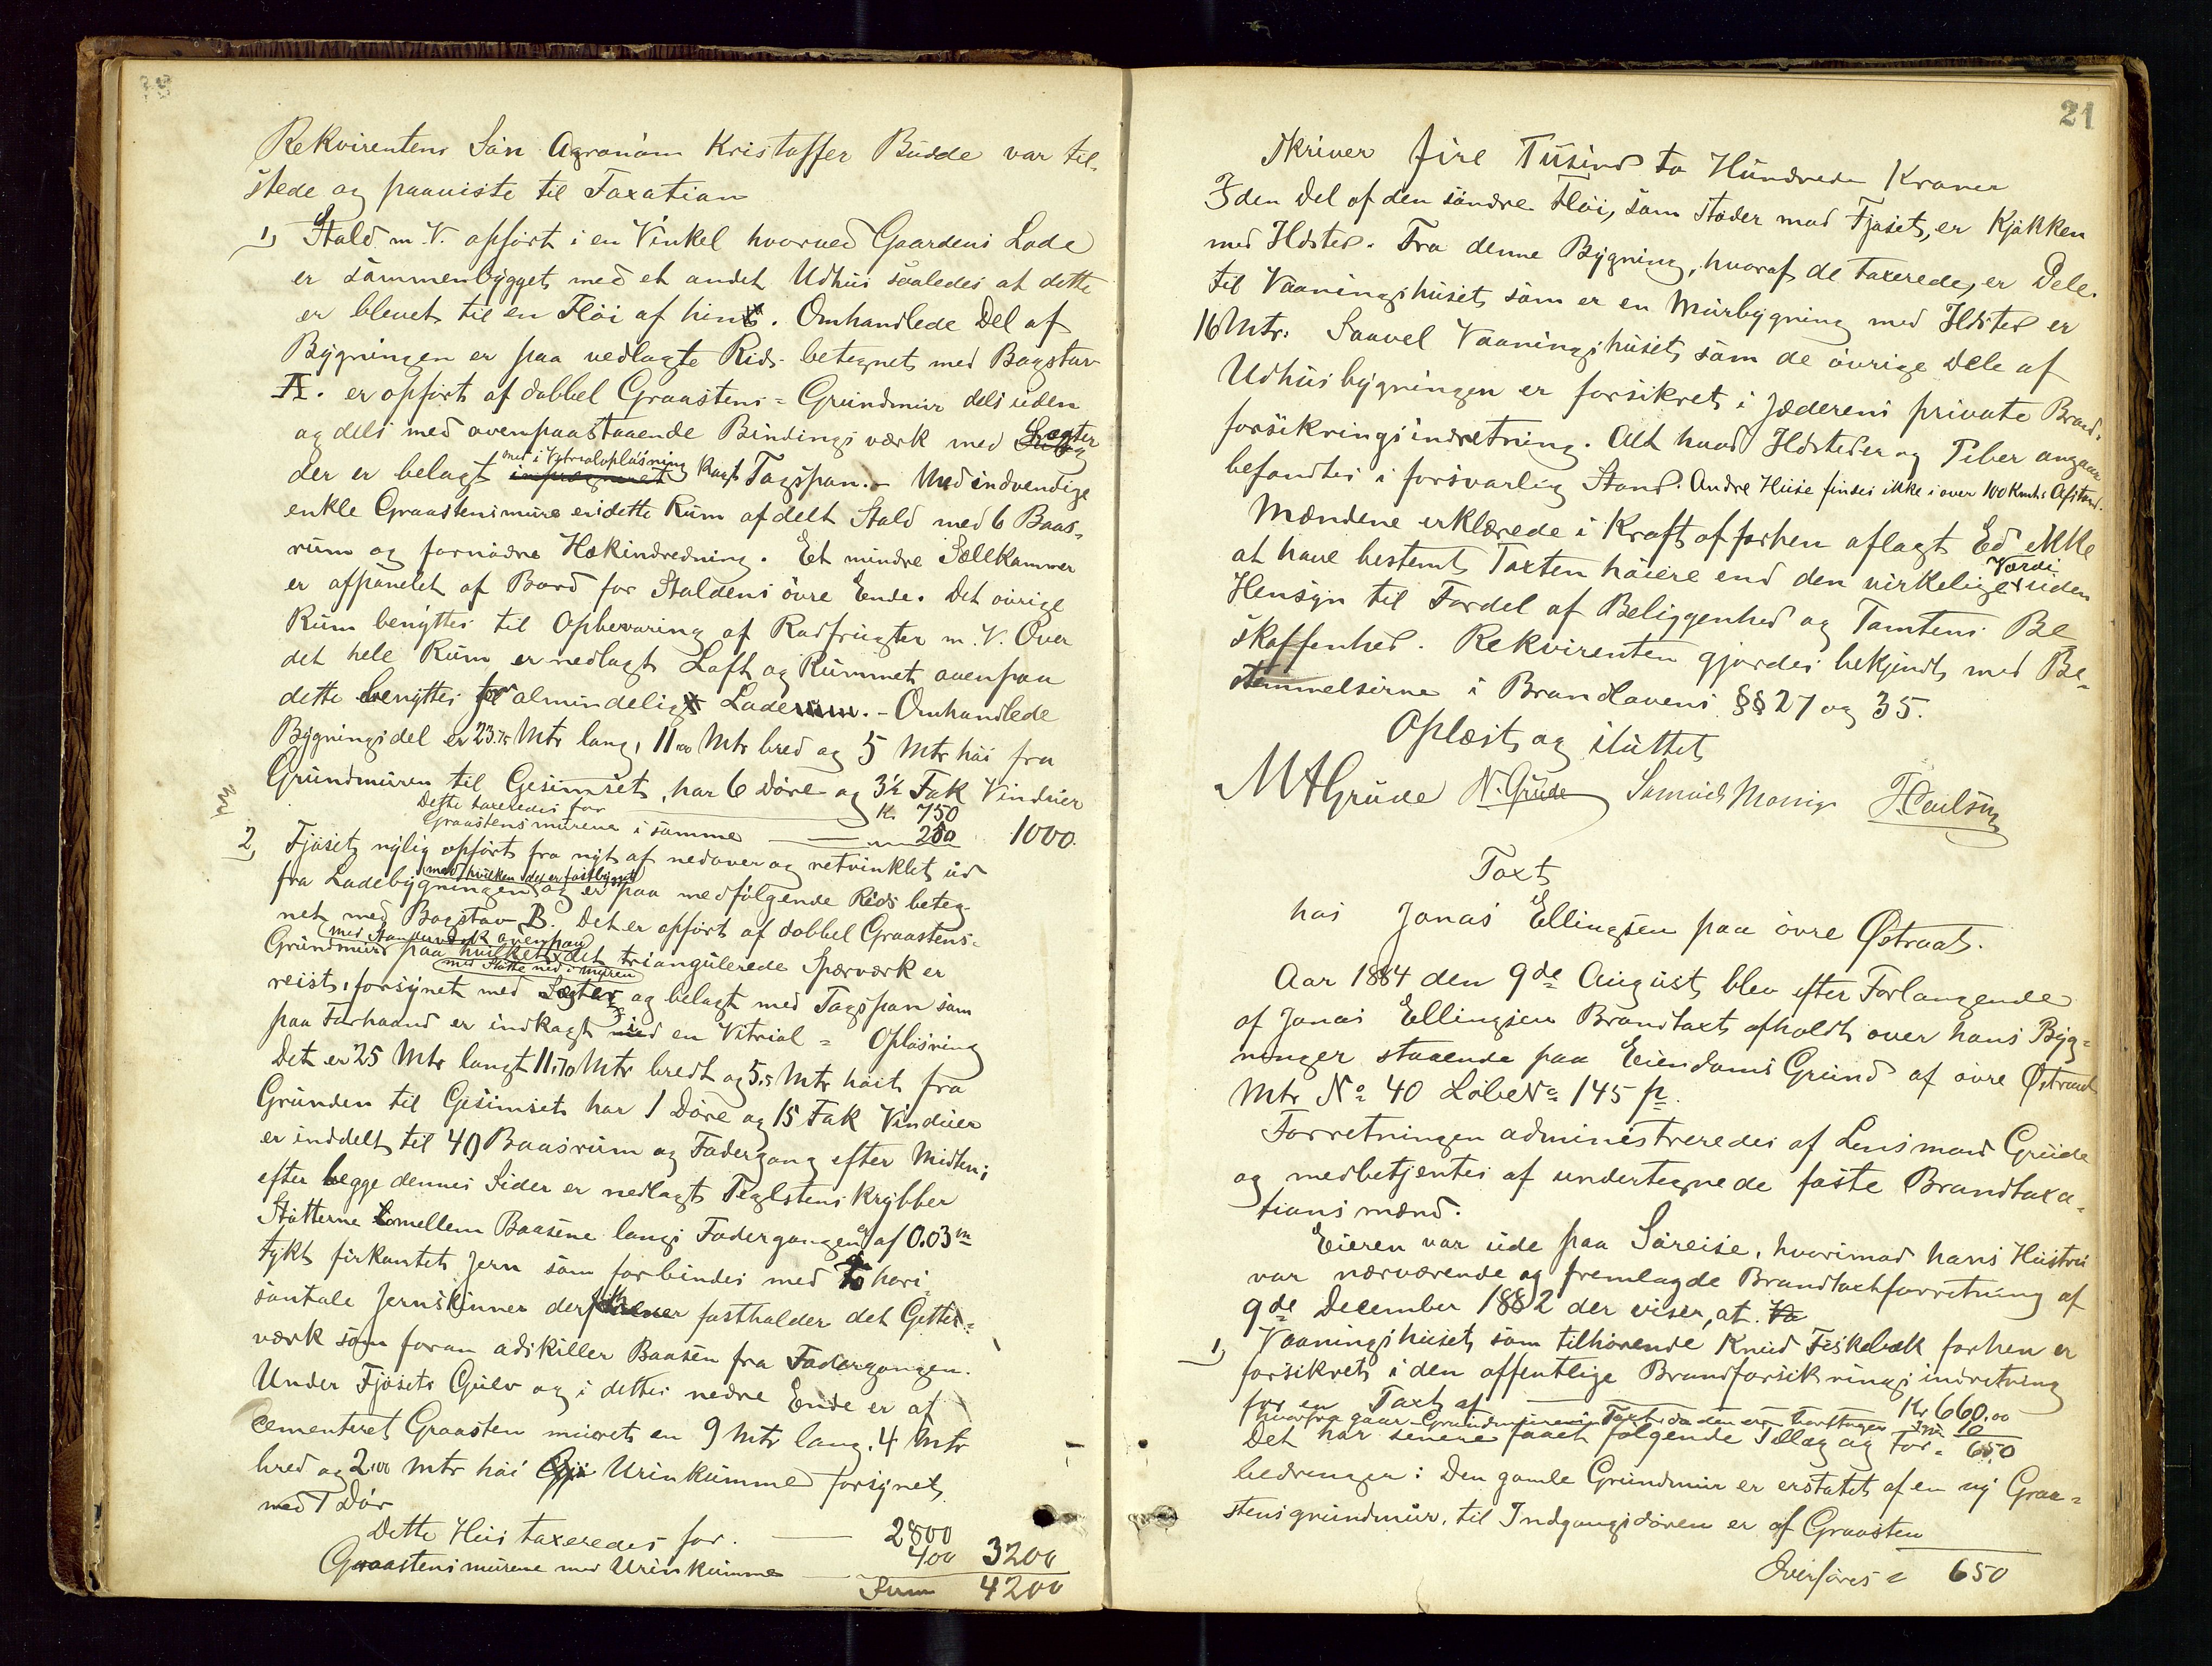 Rekvirentens Sön Agronom Kristoffer Budde var til-
stede og paaviste til Taxation
1, Stald m. V. opfört i en Vinkel hvorved Gaardens Lade
er sammenbygget med et andet Udhus saaledes at dette
er blevet til en Flöi af hint. Omhandlede Del af
Bygningen er paa vedlagte Rids betegnet med Bogstav
A. er opfört af dobbel Graastens-Grundmur dels uden
og dels med ovenpaastaaende Bindingsværk med Lægter
der er belagt med i Vitrialoplösning kogt Tagspan. - Med indvendige
enkle Graastensmure er dette Rum afdelt Stald med 6 Baas-
rum og fornödne Hækindredning. Et mindre Sellkammer
er afpanelet af Bord for Staldens övre Ende. Det övrige
Rum benyttes til Opbevaring af Rodfrugter m. V. Over
det hele Rum er nedlagt Loft og Rummet ovenpaa
dette benyttes for almindelig Laderum. - Omhandlede
Bygningsdel er 23.75 Mtr lang, 11.00 Mtr bred og 5 Mtr höi fra
Grundmuren til Gesimset, har 6 Döre og 3½ Fak Vinduer
Dette taxeredes for Kr. 750
Graastensmurene i samme 250 1000.
2, Fjöset nylig opfört fra nyt af nedover og retvinklet ud
fra Ladebygningen med hvilken det er fastbygget og er paa medfölgende Rids beteg-
net med Bogstav B. Det er opfört af dobbel Graastens-
Grundmur med Standerværk ovenpaa paa hvilket det triangulerede Sperværk er
med Stötte ned i muren
reist, forsynet med Lægter og belagt med Tagspan som
paa Forhaand er indkogt i en Vitriol = Oplösning
Det er 25 Mtr langt 11.70 Mtr bredt og 5.5 Mtr höit fra
Grunden til Gesimset har 1 Döre og 15 Fak Vinduer
er inddelt til 40 Baasrum og Fodergang efter Midten;
efter begge dennes Sider er nedlagt Teglstens Krybber
Stötterne mellem Baasene langs Fodergangen er af 0.03 m
tykt firkantet Jern som forbindes med to hori-
sontale Jernskinner der fastholder det Gitter-
værk som foran adskiller Baasen fra Fodergangen.
Under Fjösets Gulv og i dettes nedre Ende er af
cementeret Graasten muret en 9 Mtr lang, 4 Mtr
bred og 2.00 Mtr höi Urinkumme forsynet
med 1 Dör
Dette Hus taxeredes for. 2800
Graastensmurene med Urinkumme 400 3200
Sum 4200
21
skriver fire Tusind to Hundrede Kroner
I den Del af den söndre Flöi, som Stöder mod Fjöset, er Kjökken
med Ildsted. Fra denne Bygning, hvoraf de taxerede, er Dele
til Vaaningshuset som er en Murbygning med Ildsted er
16 Mtr. Saavel Vaaningshuset som de övrige Dele af
Udhusbygningen er forsikret i Jæderens private Brand-
forsikringsindretning. Alt hvad Ildsteder og Piber angaar
befandtes i forsvarlig Stand. Andre Huse findes ikke i over 100 Afstand.
Mændene erklærede i Kraft af forhen aflagt Ed ikke
at have bestemt Taxten höiere end den virkelige Værdi uden
Hensyn til Fordel af Beliggenhed og Tomtens Be
skaffenhed. Rekvirenten gjordes bekjendt med Be-
stemmelserne i Brandlovens §§ 27 og 35.
Oplæst og sluttet
M A Grude N. Grude Samuel
Taxt
hos Jonas Ellingsen paa övre Østraat.
Aar 1884 den 9de August blev efter Forlangende
af Jonas Ellingsen Brandtaxt afholdt over hans Byg-
ninger staaende paa Eiendoms Grund af övre Østraat
Mtr No 40 LöbeNo 145 p.
Forretningen administreredes af Lensmand Grude
og medbetjentes af undertegnede faste Brandtaxa-
tionsmænd.
Eieren var ude paa Söreise, hvorimod hans Hustru
var nærværende og fremlagde Brandtaxtforretning af
9de December 1882 der viser, at
1, Vaaningshuset som tilhörende Knud Fiskebæk forhen er
forsikret i den offentlige Brandforsikringsindretning
for en Taxt af Kr 660.00
hvorfra gaar Grundmurens Taxt da den er borttagen 10
Det har senere faaet fölgende Tillæg og For- 650
bedringer: Den gamle Grundmur er erstatet af en ny Graa-
stensgrundmur, til Indgangsdören er af Graasten
Overföres 650